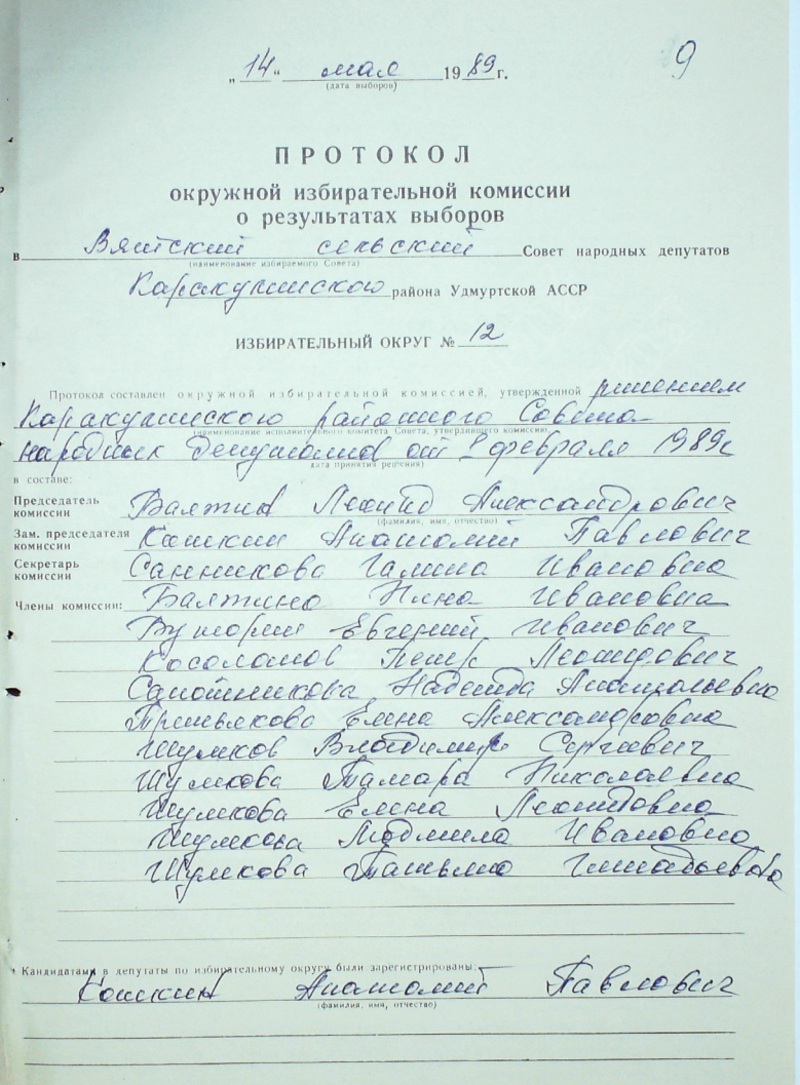 9
„14“ мая 1989 г.
(дата выборов)
ПРОТОКОЛ
окружной избирательной комиссии
о результатах выборов
в Вятский сельский Совет народных депутатов
(наименование избираемого Совета)
Каракулинского района Удмуртской АССР
ИЗБИРАТЕЛЬНЫЙ ОКРУГ № 12
Протокол составлен окружной избирательной комиссией, утвержденной решением
Каракулинского районного Совета
(наименование исполнительного комитета Совета, утвердившего комиссию,
народных депутатов от 2 февраля 1989г
дата принятия решения)
в составе:
Председатель комиссии Валтин Леонид Александрович
(фамилия, имя, отчество)
Зам. председателя комиссии Кошкин Анатолий Павлович
Секретарь комиссии Санникова Галина Ивановна
Члены комиссии: Балтина Нина Ивановна
Вуторин Евгений Иванович
Косолапов Петр Леонидович
Сапожникова Надежда Анатольевна
Третьякова Елена Александровна
Шумков Владимир Сергеевич
Шумкова Тамара Николаевна
Шумкова Елена Леонидовна
Шумкова Людмила Ивановна
Шумкова Татьяна Геннадьевна
Кандидатами в депутаты по избирательному округу были зарегистрированы:
Кошкин Анатолий Павлович
(фамилия, имя, отчество)